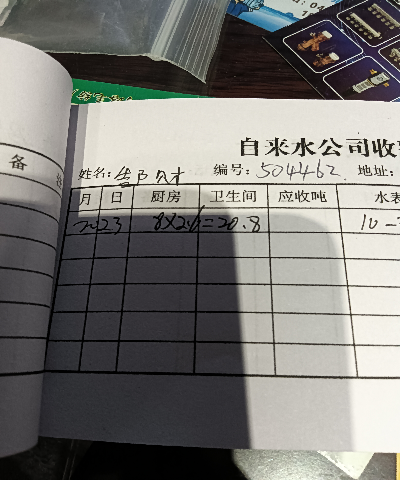 备
自来水公司收
姓名: 编号: 504462 地址:
月 日 厨房 卫生间 应收吨 水表
2023 8×26=20.8 10-